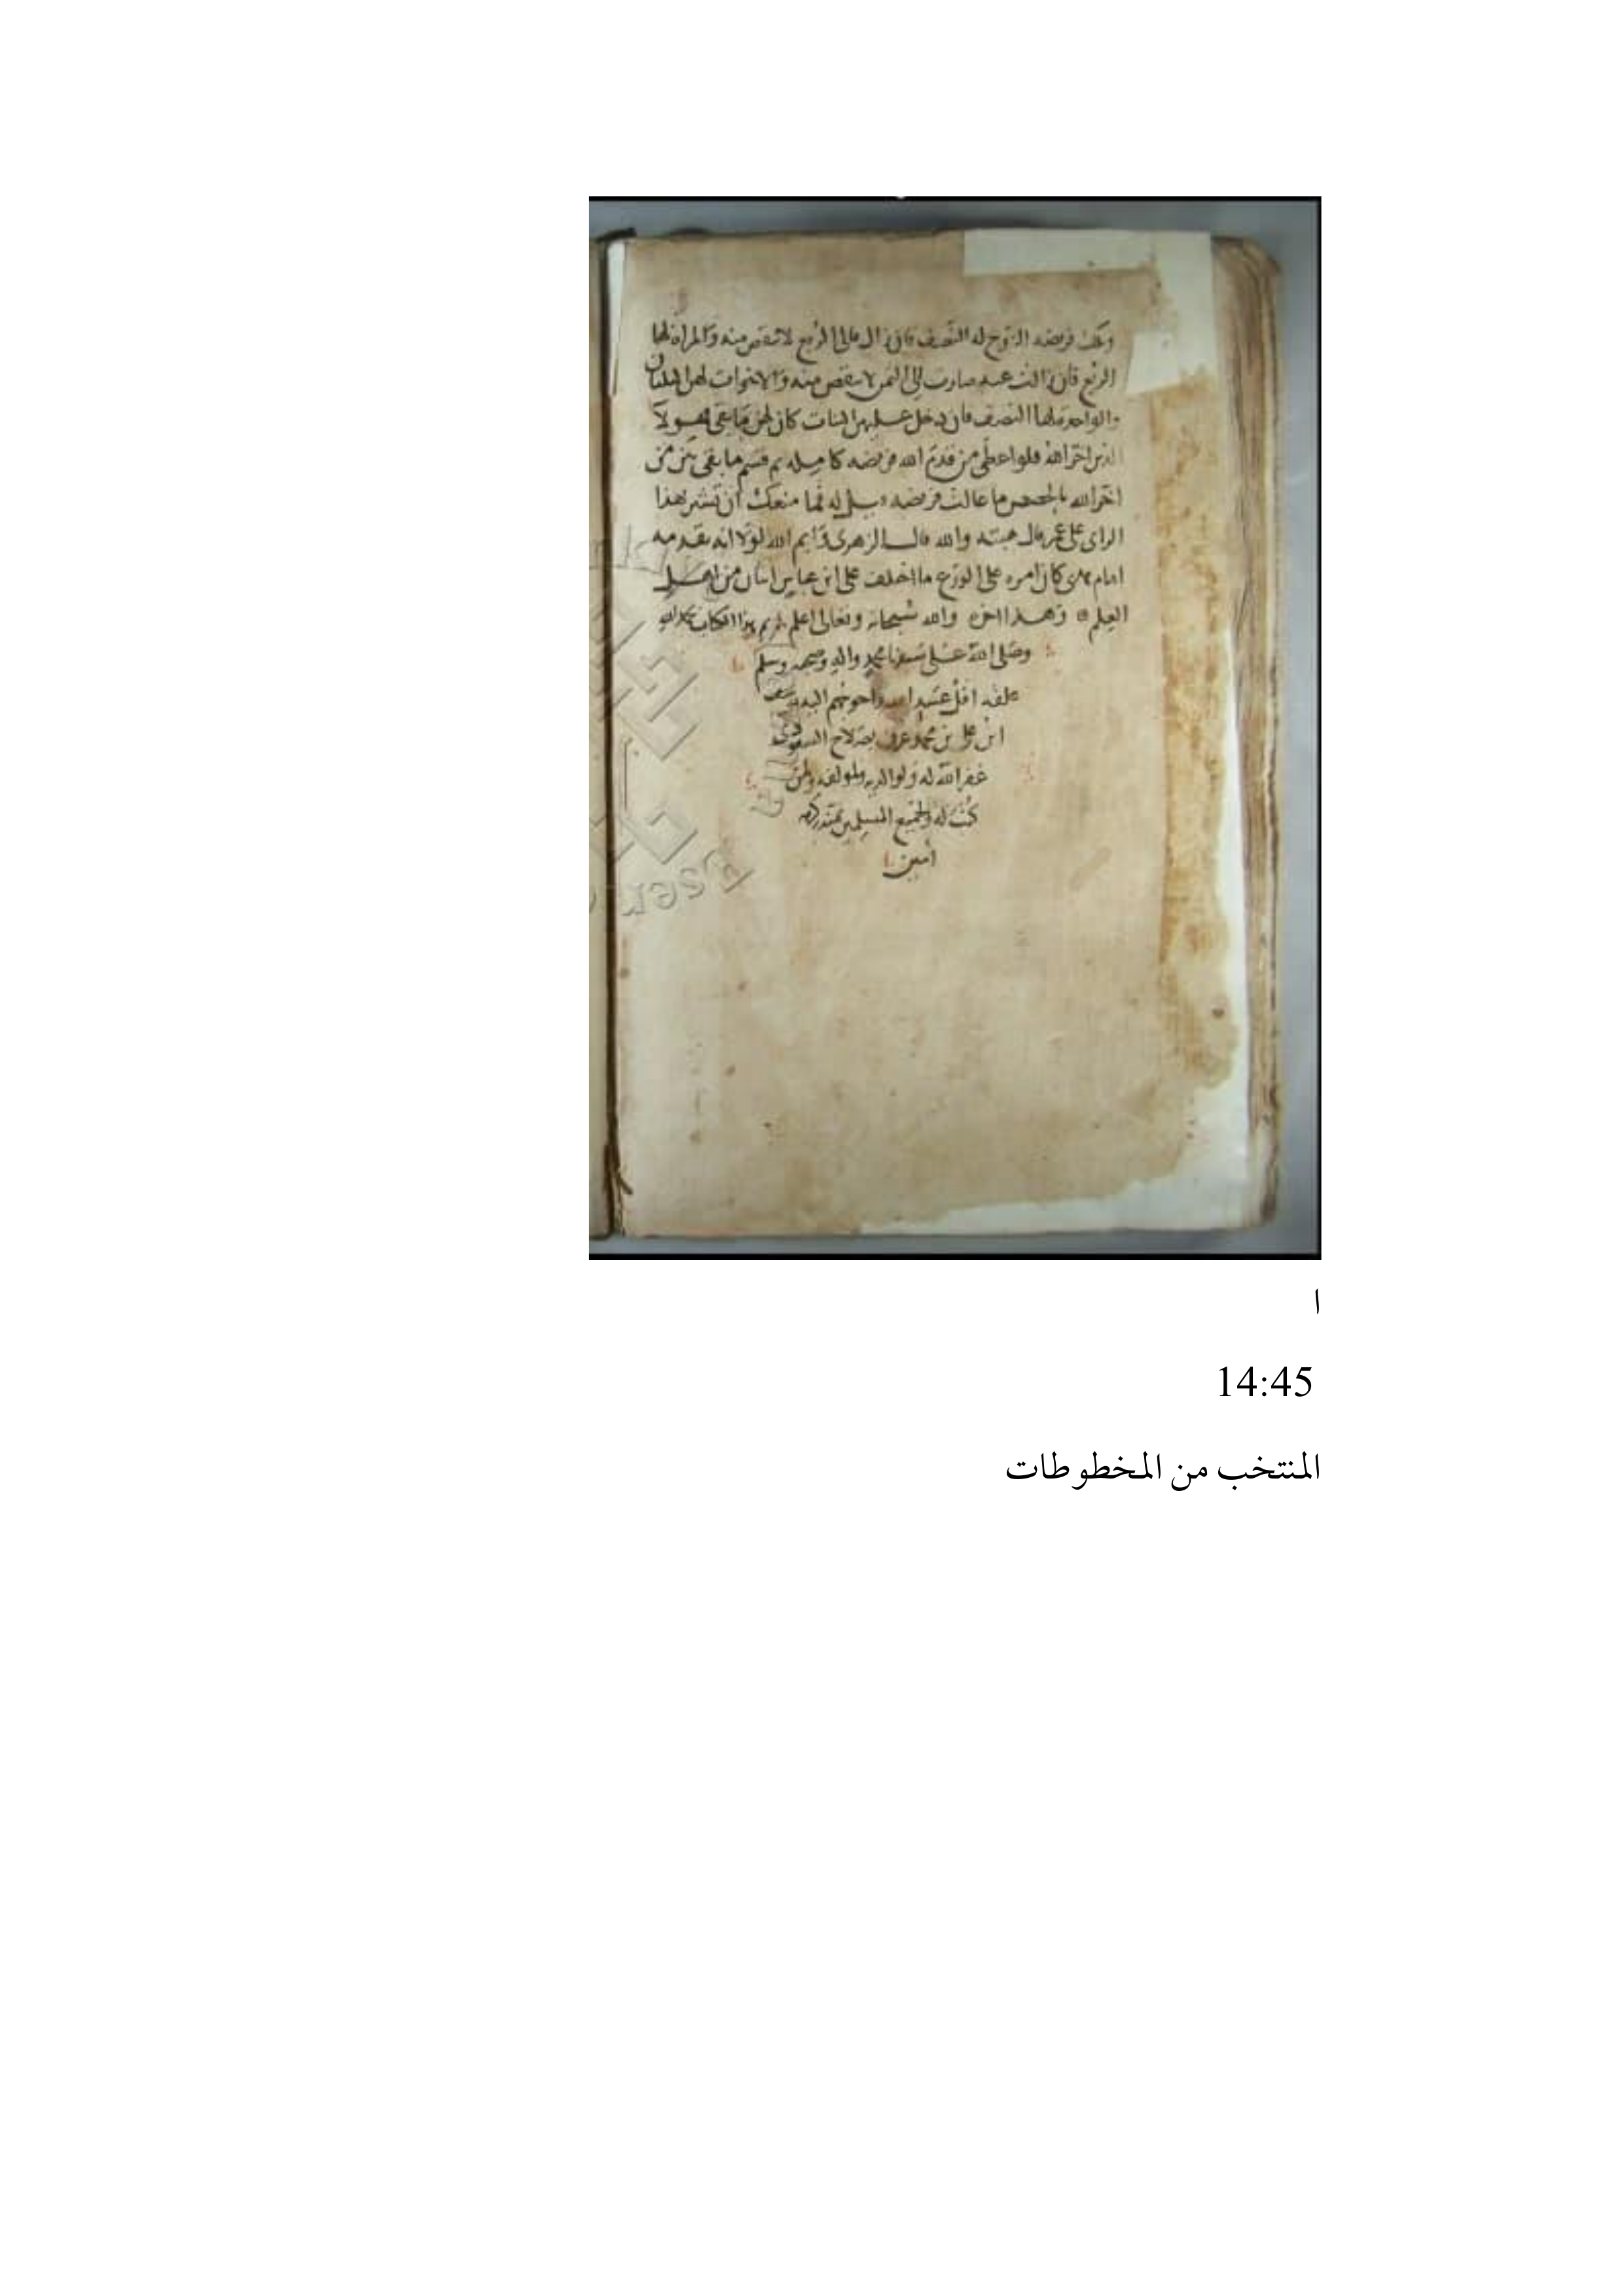 وتلك فريضه الزوج له النصف فان زال فالى الربع لا ينقص منه والمراة لها
الربع فان زالت عنه صارت الى الثمن لا ينقص منه والاخوات لهن الثلثان
والواحدة لها النصف فان دخل عليهن البنات كان لهن ما بقى فهولا
الذين اخر الله فلو اعطى من قدم الله فريضه كامله ثم قسم ما بقى بين من
اخر الله بالحصص ما عالت فريضه فيل له فما منعك ان تشير بهذا
الراى على عمر قال هبته والله قال الزهرى وايم الله لولا انه تقدمه
امام هدى كان امره على الورع ما اختلف على ابن عباس اثنان من اهل
العلم وهذا اخره والله سبحانه وتعالى اعلم تم هذا الكتاب
وصلى الله على سيدنا محمد واله وصحبه وسلم
علقه اقل عبيد الله واحوجهم اليه
ابن على بن محمد عرف بصلاح السعودى
غفر الله له ولوالديه ولمولفه ولمن
كتب له ولجميع المسلمين بمنه وكرمه
امين
ا
14:45
المنتخب من المخطوطات